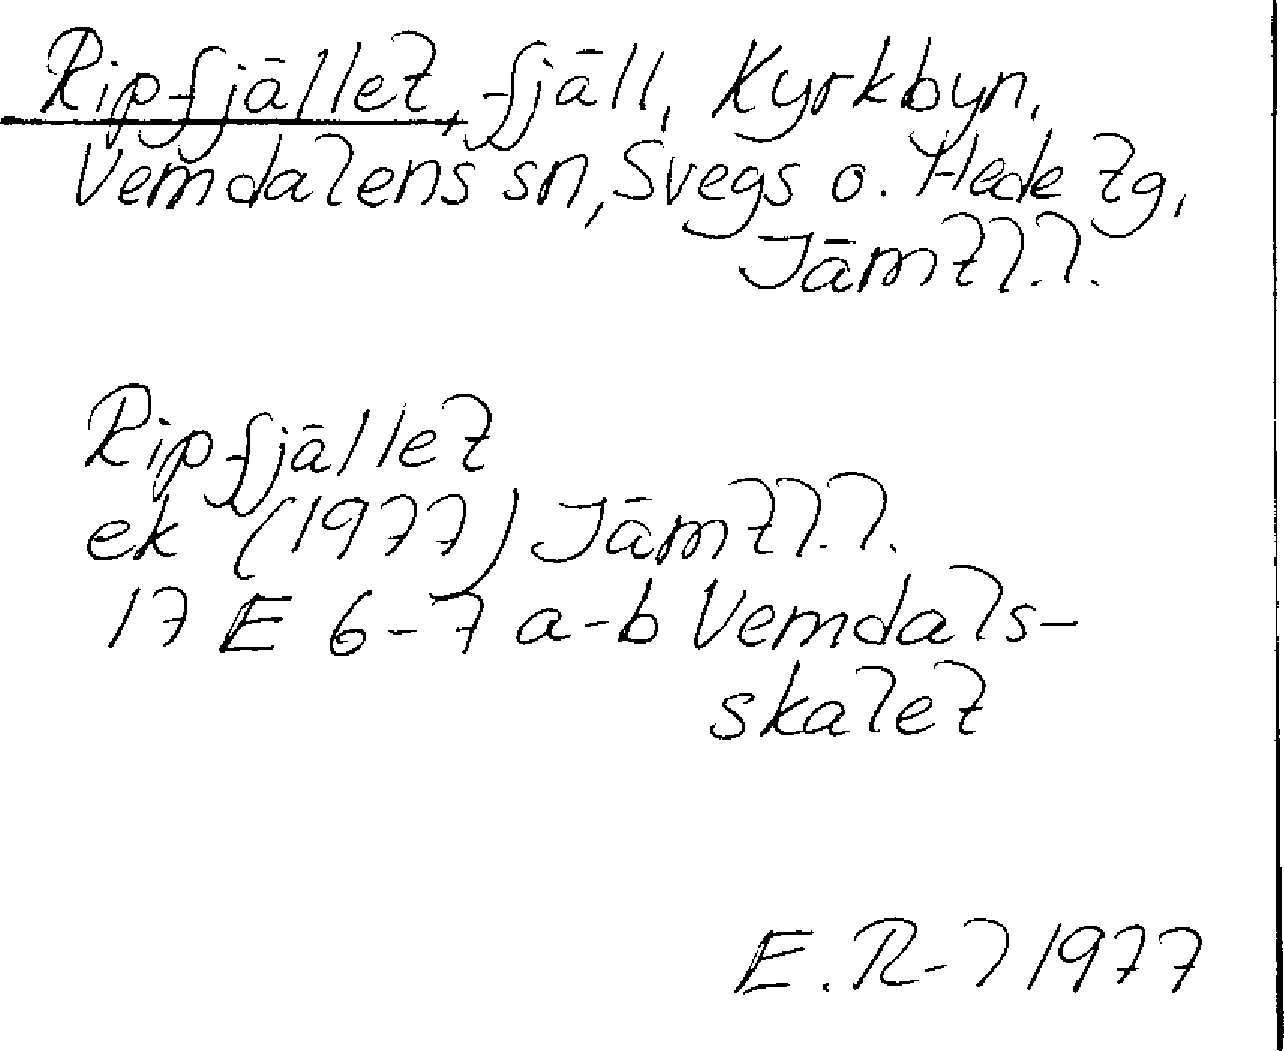 Ripfjället, fjäll, Kyrkbyn,
Vemdalens sn, Svegs o. Hede tg,
Jämtl. l.
Ripfjället
ek (1977) Jämtl. l.
17 E 6-7 a-b Vemdals-
skalet
E. R-l 1977